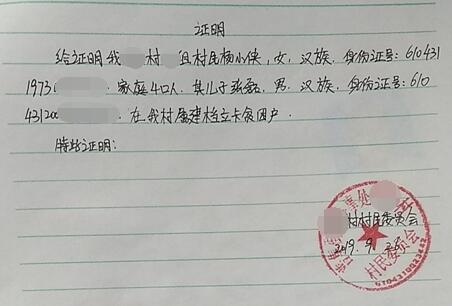 证明
给证明我 村 组村民杨小侠，女，汉族，身份证号：610431
1973 . 家庭4口人. 其儿子张磊，男，汉族，身份证号：610
431200 . 在我村属建档立卡贫困户.
特此证明：
村村民委员会
2019. 9. 25
村民委员会